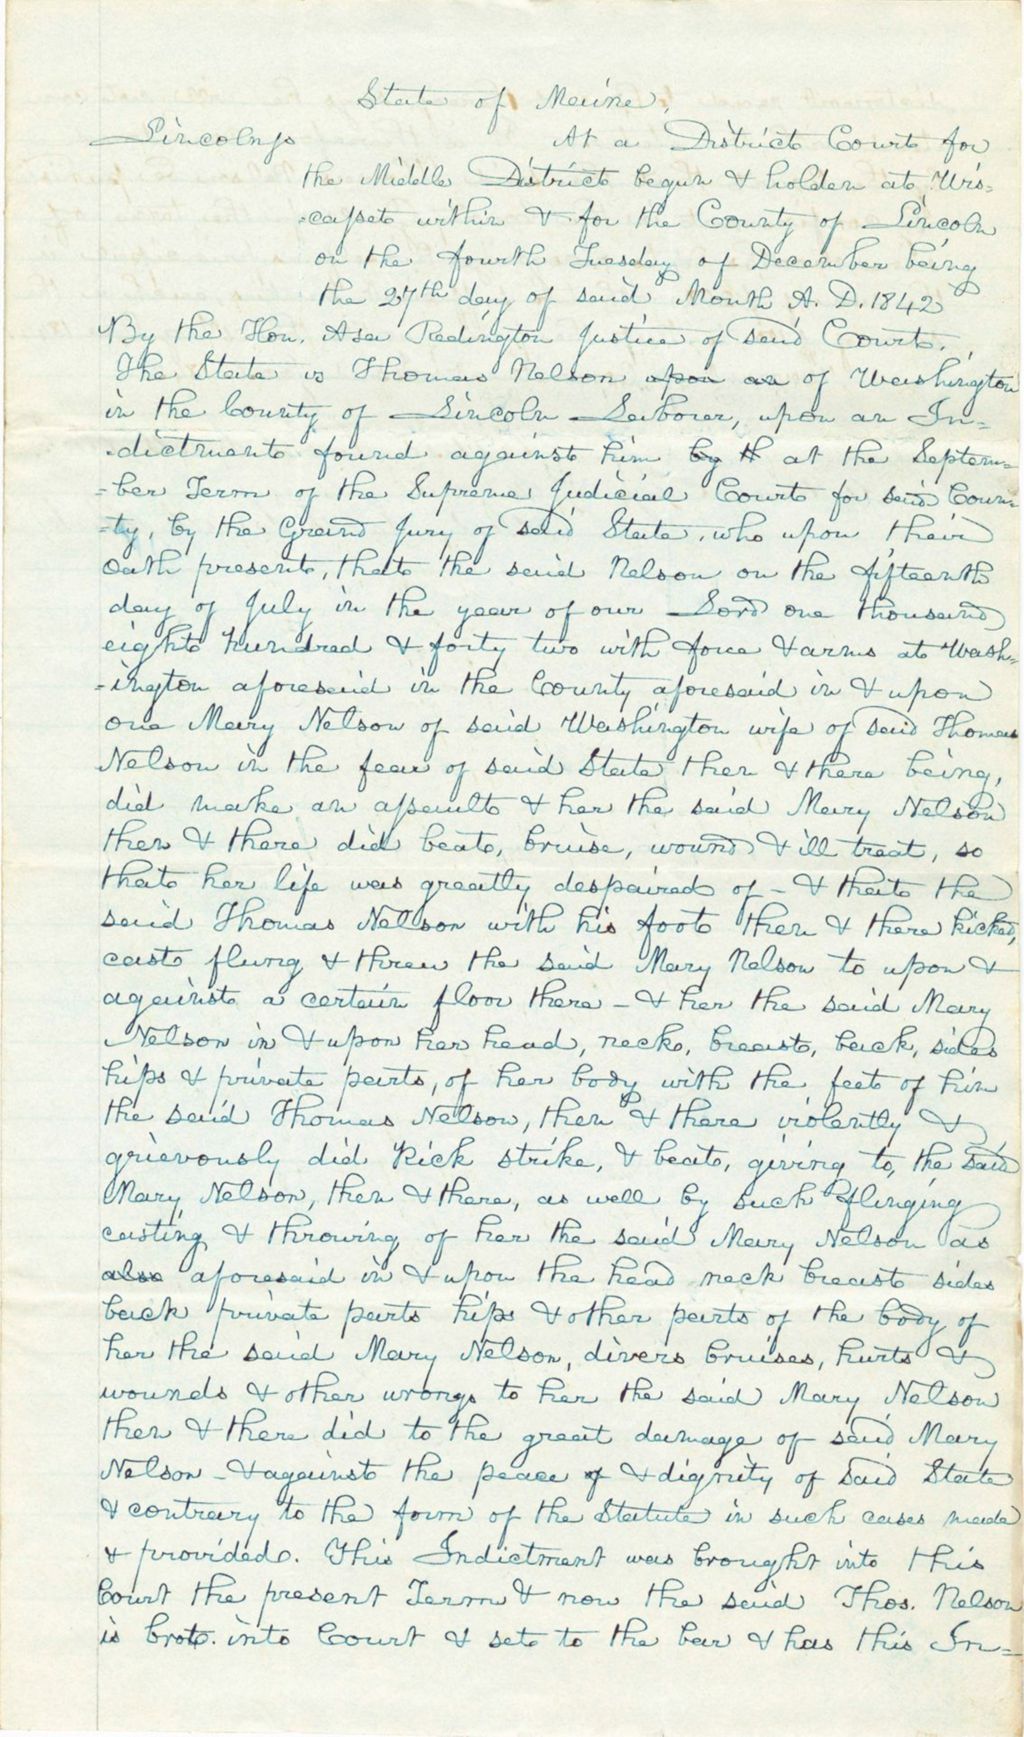 State of Maine,
Lincoln, ss At a District Court for
the Middle District begun & holden at Wis=
=casset within & for the County of Lincoln
on the fourth Tuesday of December being
the 27th day of said Month A. D. 1842
By the Hon. Asa Redington Justice of said Court.
The State vs Thomas Nelson upon an of Washington
in the County of Lincoln Laborer, upon an In=
=dictment found against him by th at the Septem=
=ber Term of the Supreme Judicial Court for said Coun=
=ty, by the Grand Jury of said State, who upon their
oath present, that the said Nelson on the fifteenth
day of July in the year of our Lord one thousand
eight hundred & forty two with force & arms at Wash=
=ington aforesaid in the County aforesaid in & upon
one Mary Nelson of said Washington wife of said Thomas
Nelson in the fear of said State then & there being,
did make an assault & her the said Mary Nelson
then & there did beat, bruise, wound & ill treat, so
that her life was greatly despaired of - & that the
said Thomas Nelson with his foot then & there kicked,
cast flung & threw the said Mary Nelson to upon &
against a certain floor there - & her the said Mary
Nelson in & upon her head, neck, breast, back, sides
hips & private parts, of her body with the feet of him
the said Thomas Nelson, then & there violently &
grievously did kick strike, & beat, giving to, the said
Mary Nelson, then & there, as well by such flinging
casting & throwing of her the said Mary Nelson as
also aforesaid in & upon the head neck breast sides
back private parts hips & other parts of the body of
her the said Mary Nelson, divers bruises, hurts &
wounds & other wrongs to her the said Mary Nelson
then & there did to the great damage of said Mary
Nelson - & against the peace of & dignity of said State
& contrary to the form of the Statute in such cases made
& provided. This Indictment was brought into this
Court the present Term & now the said Thos. Nelson
is brot. into Court & set to the bar & has this In=